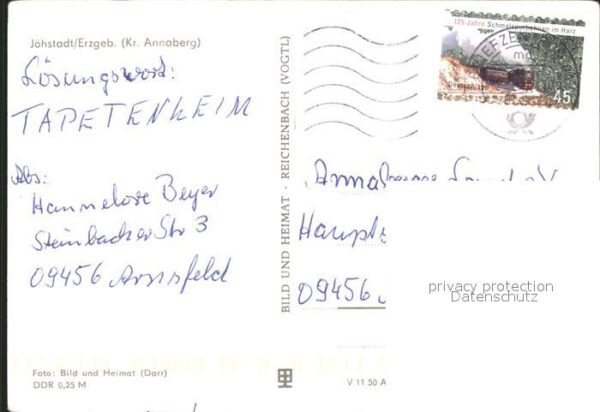 Jöhstadt/Erzgeb. (Kr. Annaberg)
Lösungswort:
TAPETENLEIM
Abs:
Hannelore Beyer
Steinbacher Str 3
09456 Arnsfeld
Foto: Bild und Heimat (Darr)
DDR 0,25 M
BILD UND HEIMAT · REICHENBACH (VOGTL)
V 11 50 A
125 Jahre Schmalspurbahnen im Harz
45
BRIEFZE
Haupts
09456
privacy protection
Datenschutz